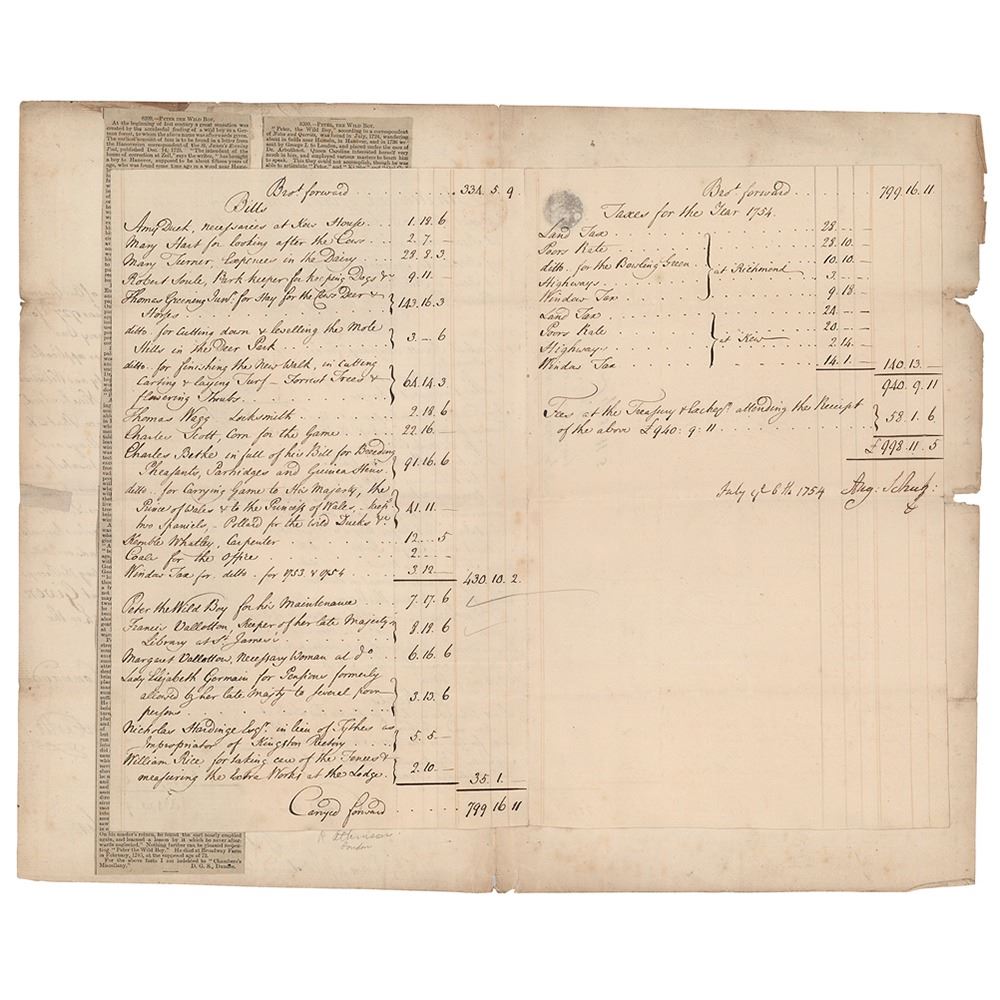 6299.—PETER THE WILD BOY.
At the beginning of last century a great sensation was
created by the accidental finding of a wild boy in a Ger-
man forest, to whom the above name was afterwards given.
The earliest account of him is to be found in a letter from
the Hanoverian correspondent of the St. James's Evening
Post, published Dec. 14, 1725. "The intendant of the
house of correction at Zell," says the writer, "has brought
a boy to Hanover, supposed to be about fifteen years of
age, who was found some time ago in a wood near Hame-
6300.—PETER, THE WILD BOY.
"Peter, the Wild Boy," according to a correspondent
of Notes and Queries, was found in July, 1724, wandering
about in fields near Hameln, in Hanover, and in 1726 we
sent by George I. to London, and placed under the care of
Dr. Arbuthnot. Queen Caroline interested herself very
much in him, and employed various masters to learn him
to speak. This they could not accomplish, though
Bro.t forward . . . . . . 334. 5. 9.
Bills
Amy Duck, necessaries at Kew House . . . 1. 18. 6
Mary Hart for looking after the Cows . . . 2. 7. —
Mary Turner Expences in the Dairy . . . . 28. 8. 3.
Robert Soule, Park Keeper for keeping Dogs &c 9. 11. —
Thomas Greening Jun.r for Hay for the Cows Deer &
Horses . . . . . . . . 143. 16. 3
ditto. for Cutting down & levelling the Mole
Hills in the Deer Park . . . . 3. — 6
ditto. for finishing the New Walk, in cutting
Carting & laying Turf — Forrest Trees &
flowering Shrubs . . . . . . . . 64. 14. 3
Thomas Wegg Locksmith . . . . . 2. 18. 6
Charles Scott, Corn for the Game . . . . 22. 16. —
Charles Bethe in full of his Bill for Breeding
Pheasants, Partridges and Guinea Hens. 91. 16. 6
ditto. for Carrying Game to His Majesty, the
Prince of Wales & to the Princess of Wales, — keep.g
two Spaniels, — Pollard for the wild Ducks &c 41. 11. —
Kemble Whatley, Carpenter . . . . . . 12. . . 5
Coals for the Office . . . . . . . . 2. . . —
Window Tax for ditto. for 1753. & 1754 . . . . 3. 12. — 430. 10. 2.
Peter the Wild Boy for his Maintenance . . . 7. 17. 6
Francis Vallotton, Keeper of her late Majesty's
Library at S.t James's . . . . . . 8. 18. 6
Margaret Vallotton, Necessary Woman at d.o . . 6. 16. 6
Lady Elizabeth Germain for Pensions formerly
allowed by her late Maj.ty to several poor
persons . . . . . . . . . . 3. 13. 6
Nicholas Hardinge Esq.r in lieu of Tythes as
Impropriator of Kingston Rectory . . . . 5. 5. —
William Rice for taking care of the Fences &
measuring the Extra Works at the Lodge. 2. 10. — 35. 1. —
Carryed forward . . . . . . 799 16 11
R Atkinson
London
On his master's return, he found the cart nearly emptied
again, and learned a lesson by it which he never after-
wards neglected." Nothing further can be gleaned respec-
ting "Peter the Wild Boy." He died at Broadway Farm
in February, 1785, at the supposed age of 72.
For the above facts I am indebted to "Chambers's
Miscellany." D. G. S., Dundee.
Bro.t forward . . . . . 799. 16. 11
Taxes for the Year 1754.
Land Tax . . . . . . 28. . . —
Poors Rate . . . . . . 28. 10. —
ditto. for the Bowling Green . at Richmond 10. 10. —
Highways . . . . . . 3. . . —
Window Tax . . . . . . 9. 18. —
Land Tax . . . . . . 24. . . —
Poors Rate . . . . . . 20. . . —
Highways . . . . . . at Kew 2. 14. —
Window Tax . . . . . . 14. 1. — 140. 13. —
940. 9. 11
Fees at the Treasury & Excheq.r attending the Receipt
of the above £940: 9: 11 . . . . . . . . 58. 1. 6
£998. 11. 5
July y.e 6.th 1754 Aug: Schutz: